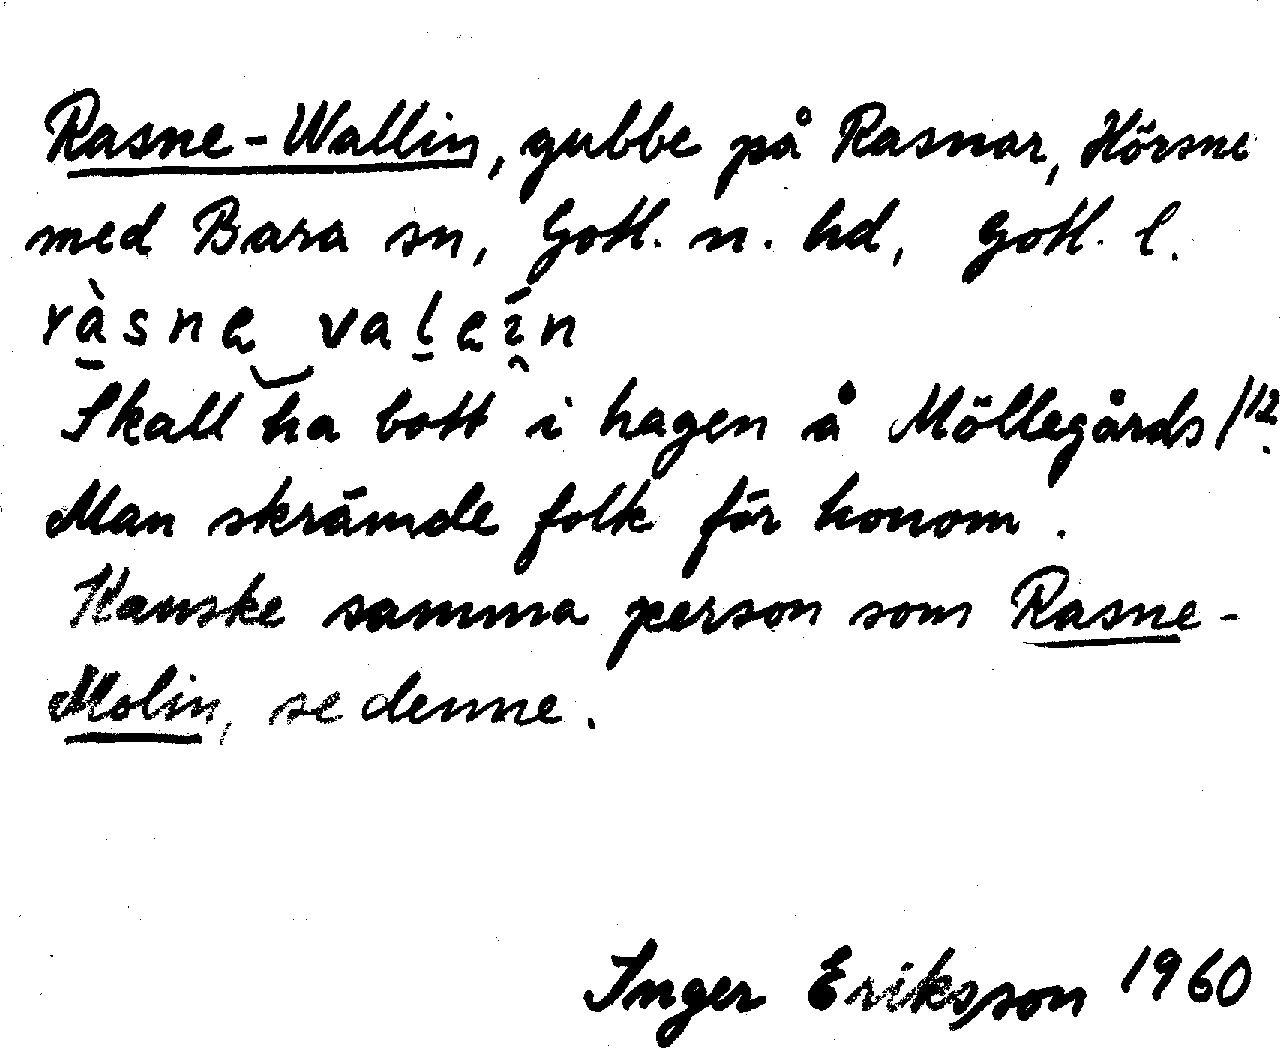 Rasne-Wallin, gubbe på Rasnar, Hörsne
med Bara sn, Gotl. n. hd, Gotl. l.
ràsnę valęín
Skall ha bott i hagen å Möllegårds 1/12.
Man skrämde folk för honom.
Kanske samma person som Rasne-
Molin, se denne.
Inger Eriksson 1960